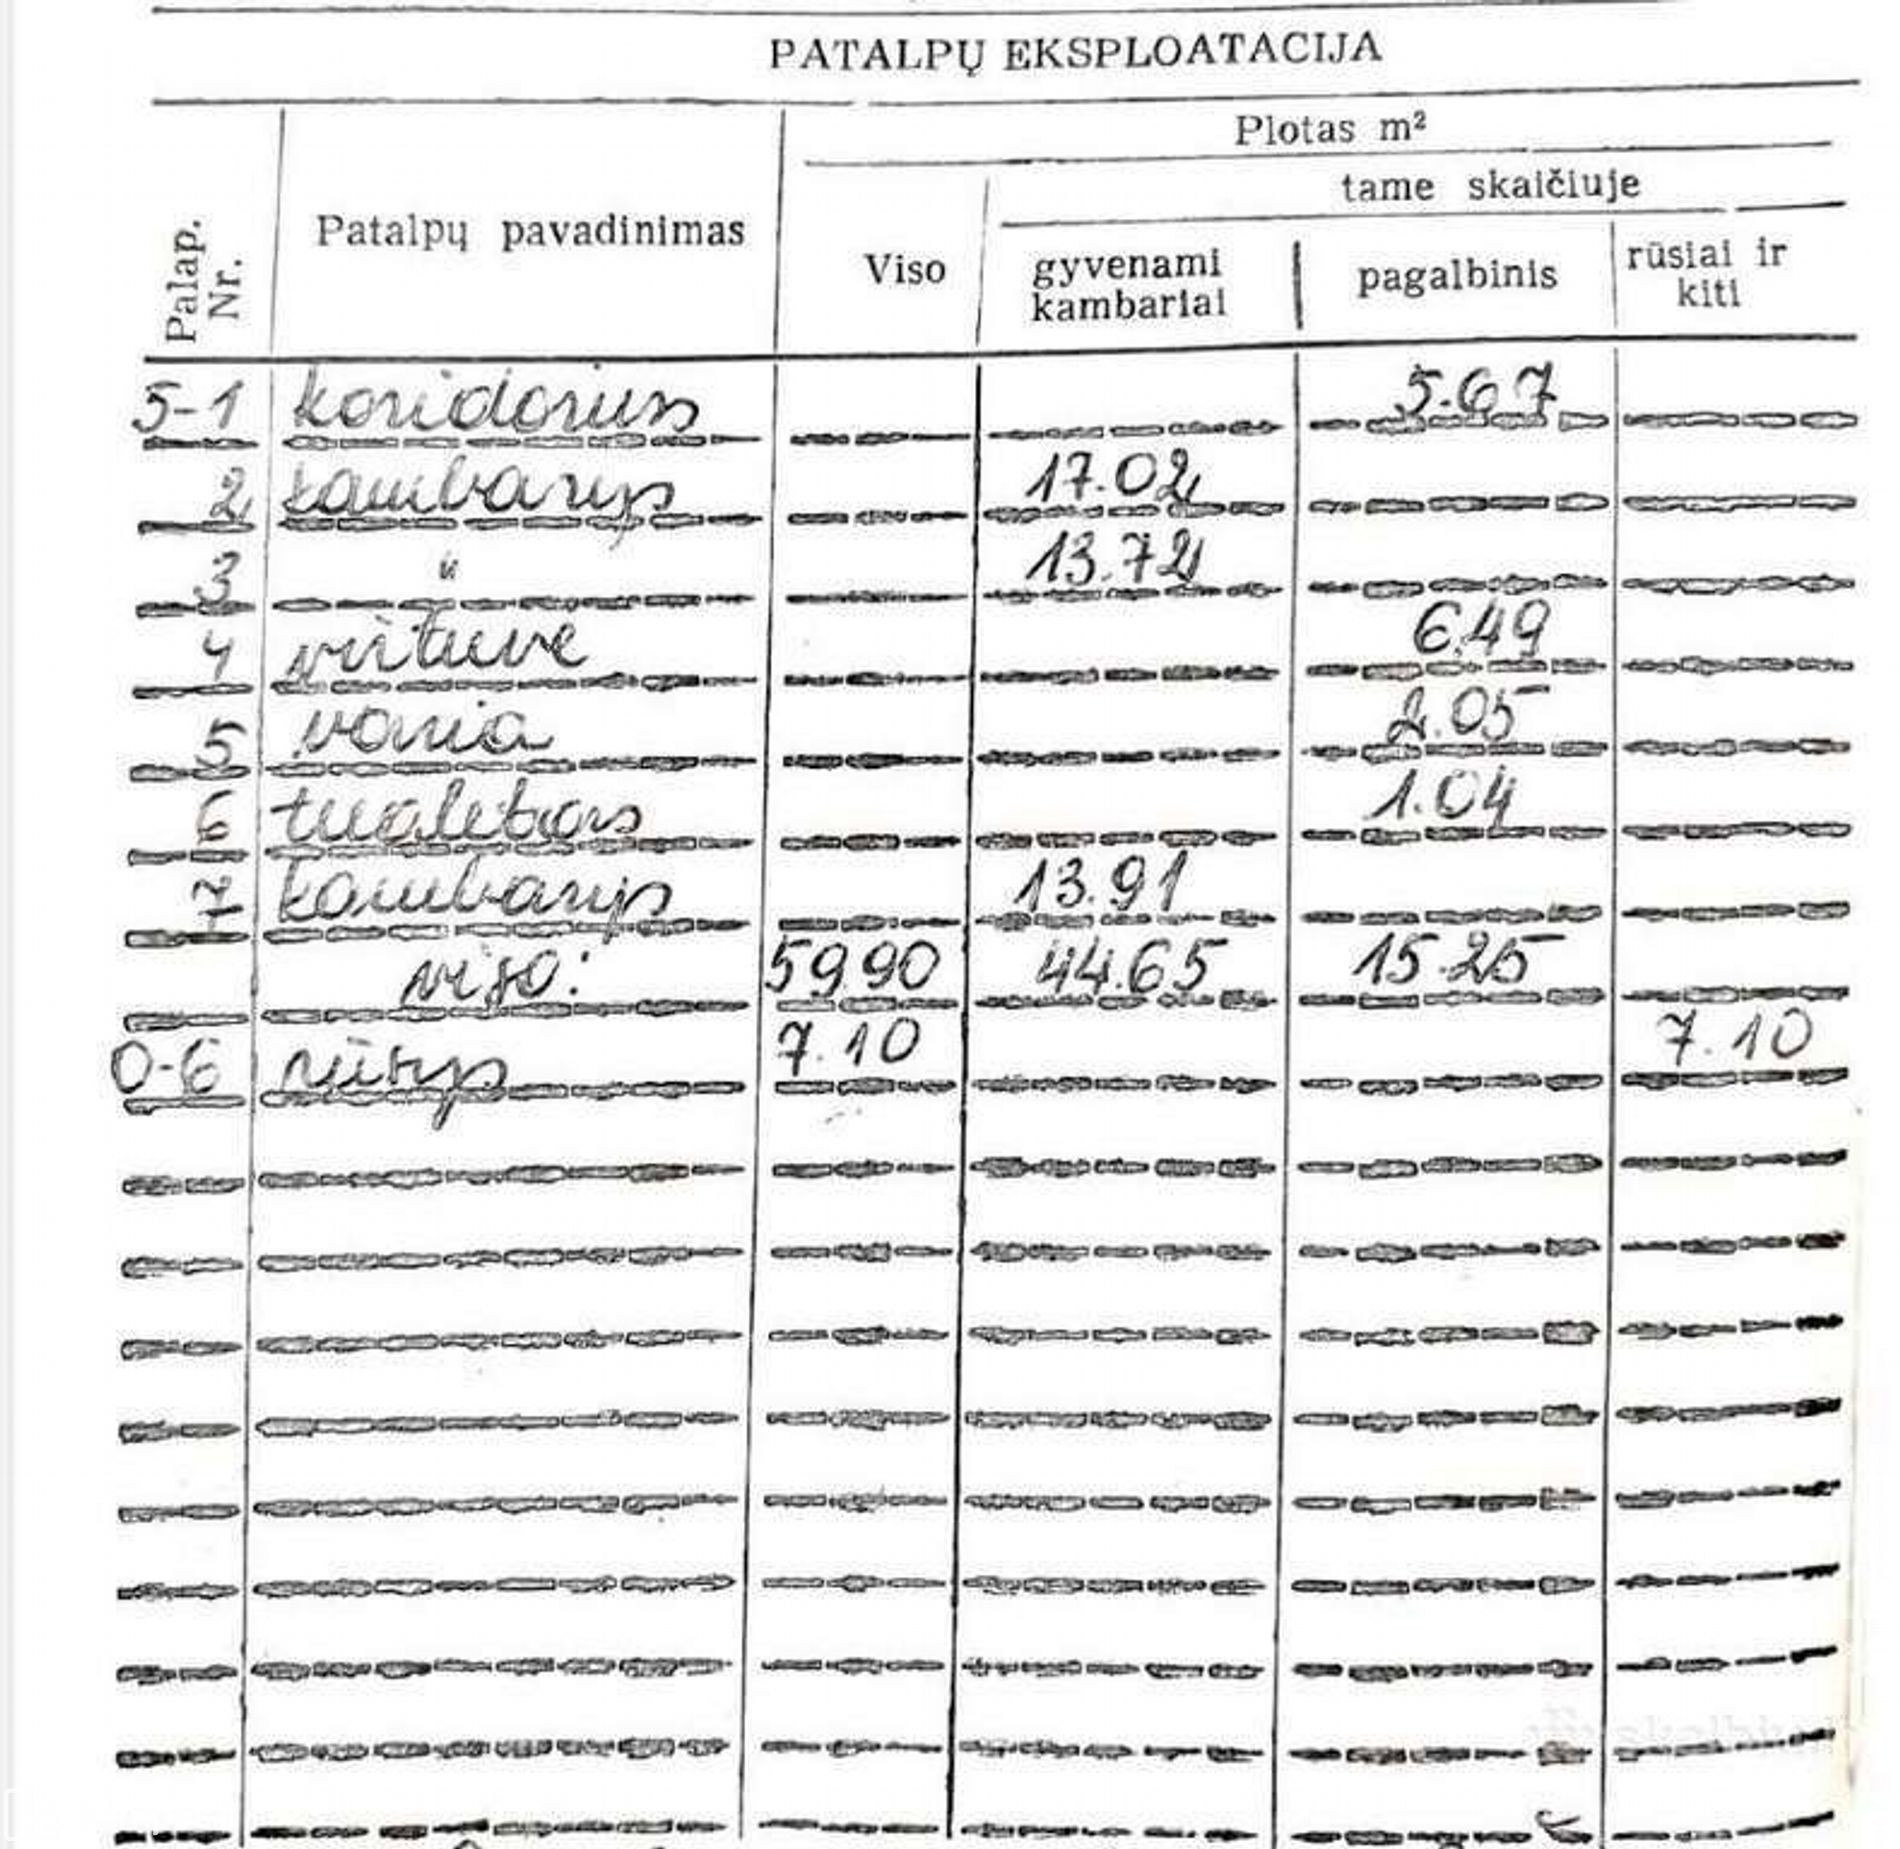 PATALPŲ EKSPLOATACIJA
Plotas m²
tame skaičiuje
Palap. Nr.
Patalpų pavadinimas
Viso
gyvenami kambariai
pagalbinis
rūsiai ir kiti
5-1 koridorius 5.67
2 kambarys 17.02
3 " 13.72
4 virtuvė 6.49
5 vonia 2.05
6 tualetas 1.04
7 kambarys 13.91
viso: 59.90 44.65 15.25
0-6 rūsys 7.10 7.10